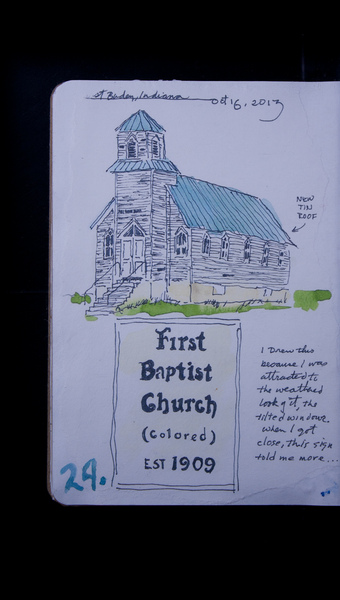 Indiana
Oct 16, 2013
NEW
TIN
ROOF
First
Baptist
Church
(Colored)
EST 1909
I Drew this
because I was
attracted to
the weathered
look of it, the
tilted windows.
When I got
close, this sign
told me more...
24.